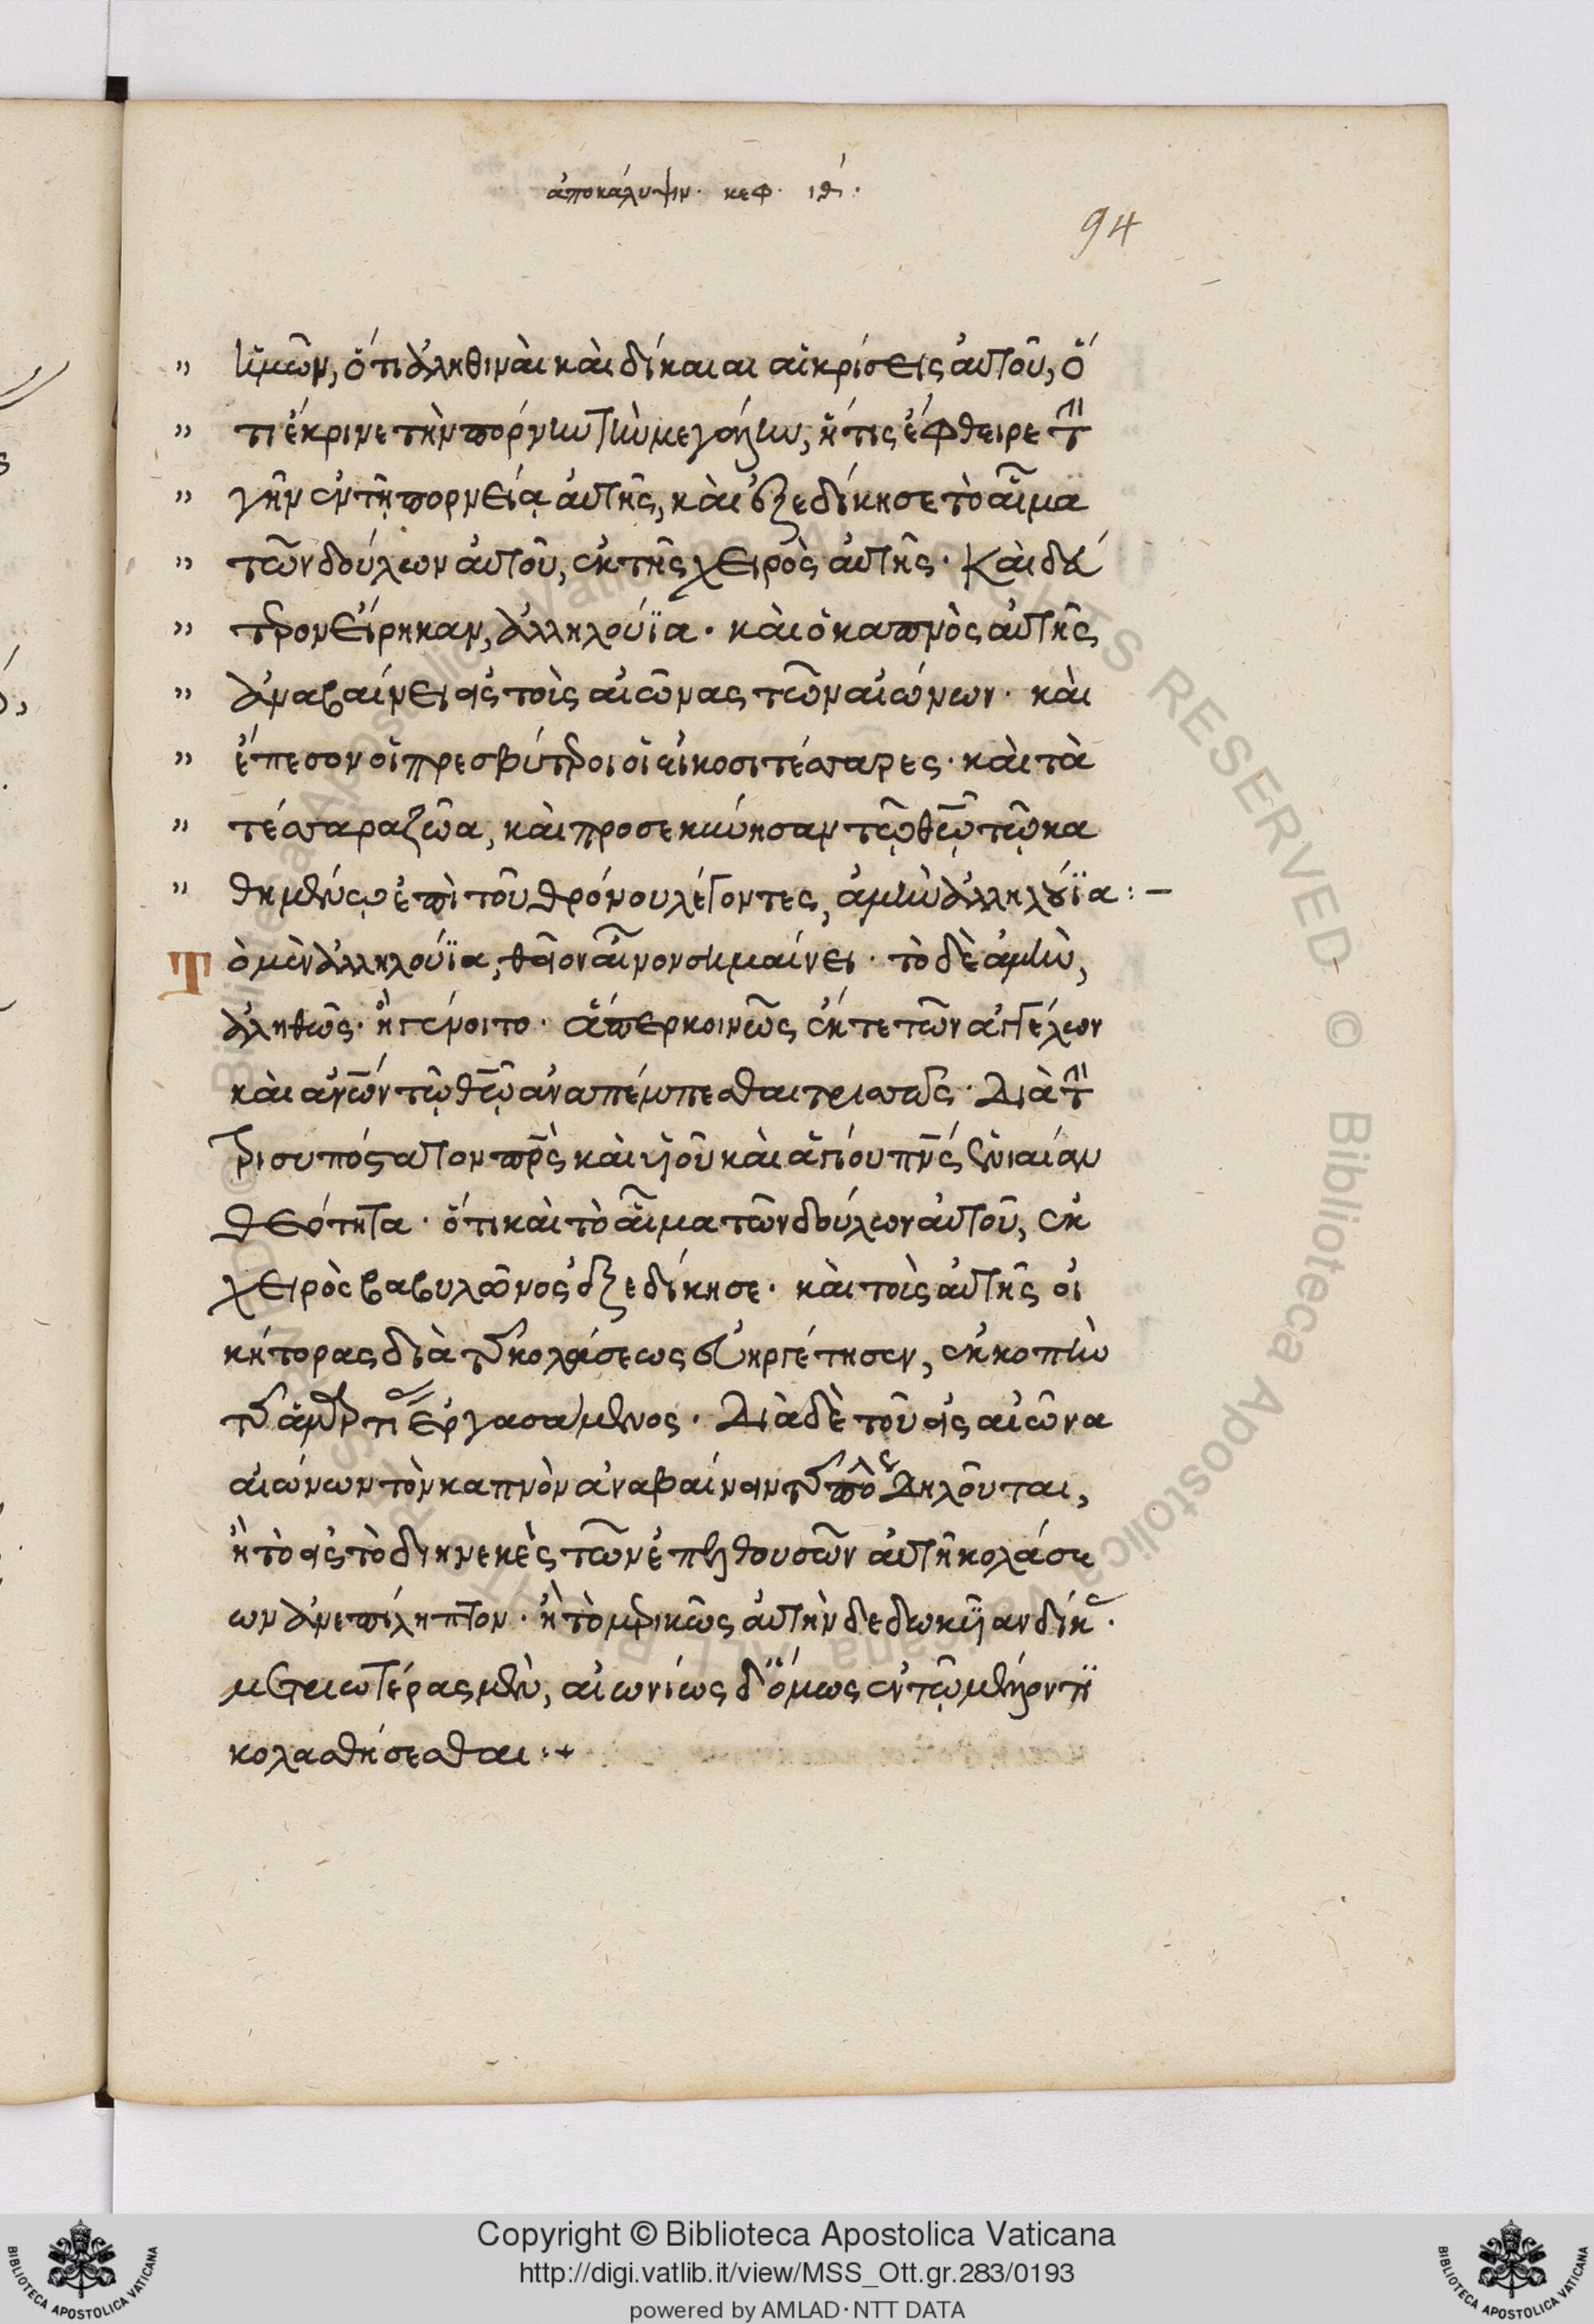 ἀποκάλυψιν. κεφ. ιθ΄.
94
ἡμῶν, ὅτι ἀληθιναὶ καὶ δίκαιαι αἱ κρίσεις αὐτοῦ, ὅ
τι ἔκρινε τὴν πόρνην τὴν μεγάλην, ἥτις ἔφθειρε τὴν
γῆν ἐν τῇ πορνείᾳ αὐτῆς, καὶ ἐξεδίκησε τὸ αἷμα
τῶν δούλων αὐτοῦ, ἐκ τῆς χειρὸς αὐτῆς. Καὶ δεύ
τερον εἴρηκαν, ἀλληλούϊα. καὶ ὁ καπνὸς αὐτῆς
ἀναβαίνει εἰς τοὺς αἰῶνας τῶν αἰώνων. καὶ
ἔπεσον οἱ πρεσβύτεροι οἱ εἰκοσιτέσσαρες. καὶ τὰ
τέσσαρα ζῶα, καὶ προσεκύνησαν τῷ θῷ τῷ κα
θημένῳ ἐπὶ τοῦ θρόνου λέγοντες, ἀμὴν ἀλληλούϊα:–
Τὸ μὲν ἀλληλούϊα, θεῖον αἶνον σημαίνει. τὸ δὲ ἀμὴν,
ἀληθῶς. ἢ γένοιτο. ἅπερ κοινῶς ἔκ τε τῶν ἀγγέλων
καὶ ἀνῶν τῷ θῷ ἀναπέμπεσθαι τρισσῶς. Διὰ τὴν
τρισυπόστατον πρς καὶ υἱοῦ καὶ ἁγίου πνς ἑνιαίαν
θεότητα. ὅτι καὶ τὸ αἷμα τῶν δούλων αὐτοῦ, ἐκ
χειρὸς βαβυλῶνος ἐξεδίκησε. καὶ τοὺς αὐτῆς οἰ
κήτορας διὰ τῆς κολάσεως εὐηργέτησεν, ἐκκοπὴν
τῆς ἁμαρτίας ἐργασάμενος. Διὰ δὲ τοῦ εἰς αἰῶνα
αἰώνων τὸν καπνὸν ἀναβαίνειν τῆς πόλεως δηλοῦται,
ἢ τὸ εἰς τὸ διηνεκὲς τῶν ἐπελθουσῶν αὐτῇ κολάσε
ων ἀνεπίληπτον. ἢ τὸ μερικῶς αὐτὴν δεδωκυῖαν δίκας.
μετριωτέρας μὲν, αἰωνίως δ' ὅμως ἐν τῷ μέλλοντι
κολασθήσεσθαι:+
Copyright © Biblioteca Apostolica Vaticana
http://digi.vatlib.it/view/MSS_Ott.gr.283/0193
powered by AMLAD·NTT DATA